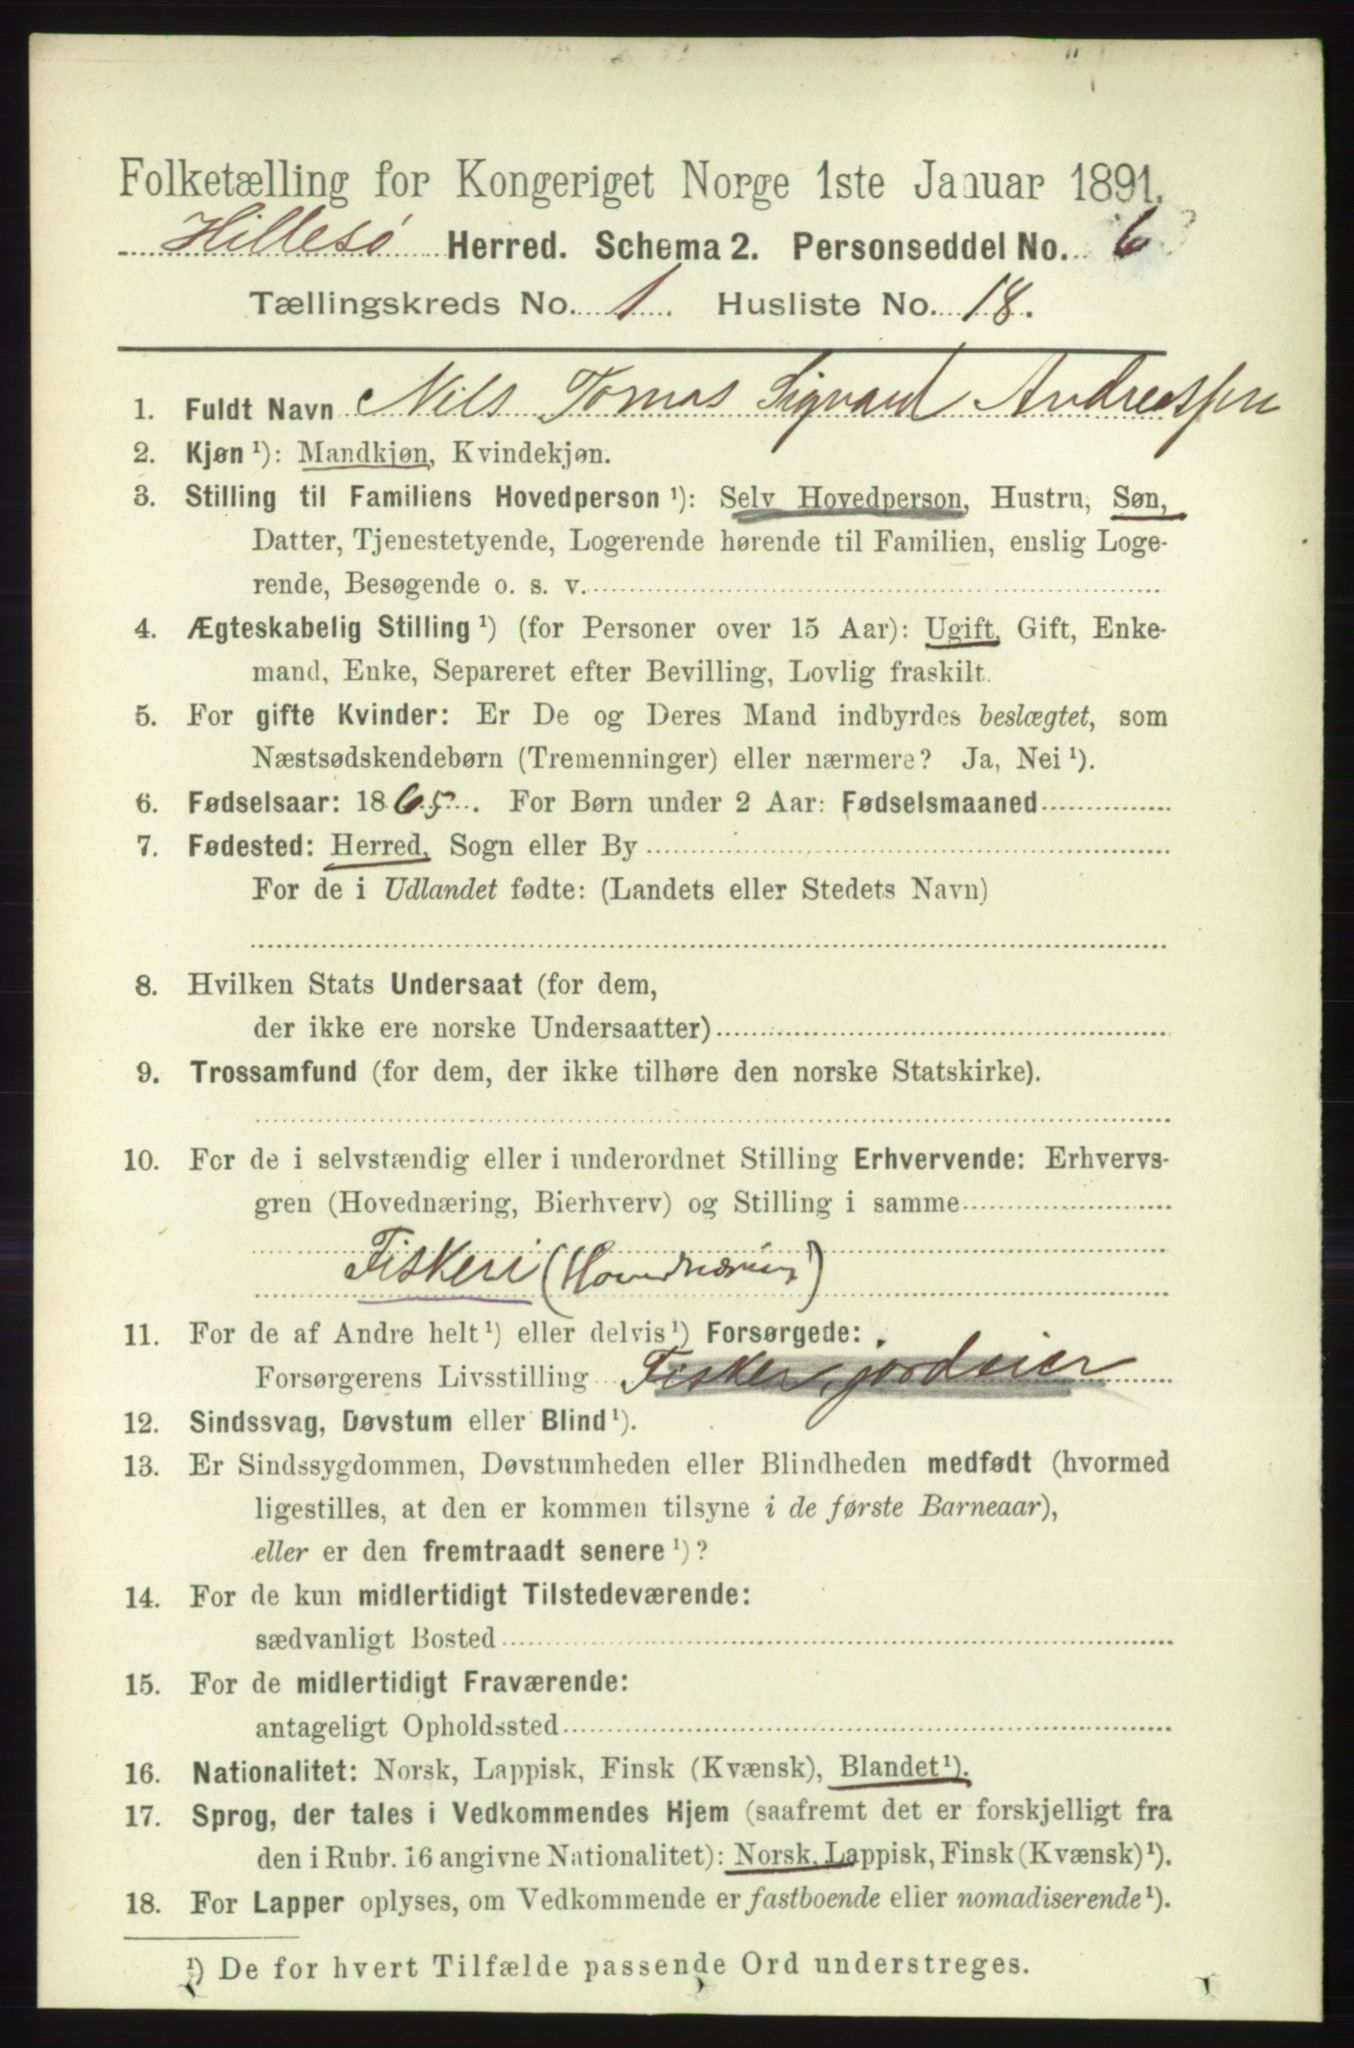 Folketælling for Kongeriget Norge 1ste Januar 1891.
Hillesø Herred. Schema 2. Personseddel No. 6
Tællingskreds No. 1. Husliste No. 18.
1. Fuldt Navn Nils Tomas Sigvard Andreassen
2. Kjøn ¹): Mandkjøn, Kvindekjøn.
3. Stilling til Familiens Hovedperson ¹): Selv Hovedperson, Hustru, Søn,
Datter, Tjenestetyende, Logerende hørende til Familien, enslig Loge-
rende, Besøgende o. s. v.
4. Ægteskabelig Stilling ¹) (for Personer over 15 Aar): Ugift, Gift, Enke-
mand, Enke, Separeret efter Bevilling, Lovlig fraskilt.
5. For gifte Kvinder: Er De og Deres Mand indbyrdes beslægtet, som
Næstsødskendebørn (Tremenninger) eller nærmere? Ja, Nei ¹).
6. Fødselsaar: 1865. For Børn under 2 Aar: Fødselsmaaned
7. Fødested: Herred, Sogn eller By
For de i Udlandet fødte: (Landets eller Stedets Navn)
8. Hvilken Stats Undersaat (for dem,
der ikke ere norske Undersaatter)
9. Trossamfund (for dem, der ikke tilhøre den norske Statskirke).
10. For de i selvstændig eller i underordnet Stilling Erhvervende: Erhvervs-
gren (Hovednæring, Bierhverv) og Stilling i samme
Fiskeri (Hovednæring)
11. For de af Andre helt ¹) eller delvis ¹) Forsørgede:
Forsørgerens Livsstilling Fisker, jordeier
12. Sindssvag, Døvstum eller Blind ¹).
13. Er Sindssygdommen, Døvstumheden eller Blindheden medfødt (hvormed
ligestilles, at den er kommen tilsyne i de første Barneaar),
eller er den fremtraadt senere ¹)?
14. For de kun midlertidigt Tilstedeværende:
sædvanligt Bosted
15. For de midlertidigt Fraværende:
antageligt Opholdssted
16. Nationalitet: Norsk, Lappisk, Finsk (Kvænsk), Blandet ¹).
17. Sprog, der tales i Vedkommendes Hjem (saafremt det er forskjelligt fra
den i Rubr. 16 angivne Nationalitet): Norsk, Lappisk, Finsk (Kvænsk) ¹).
18. For Lapper oplyses, om Vedkommende er fastboende eller nomadiserende ¹).
¹) De for hvert Tilfælde passende Ord understreges.